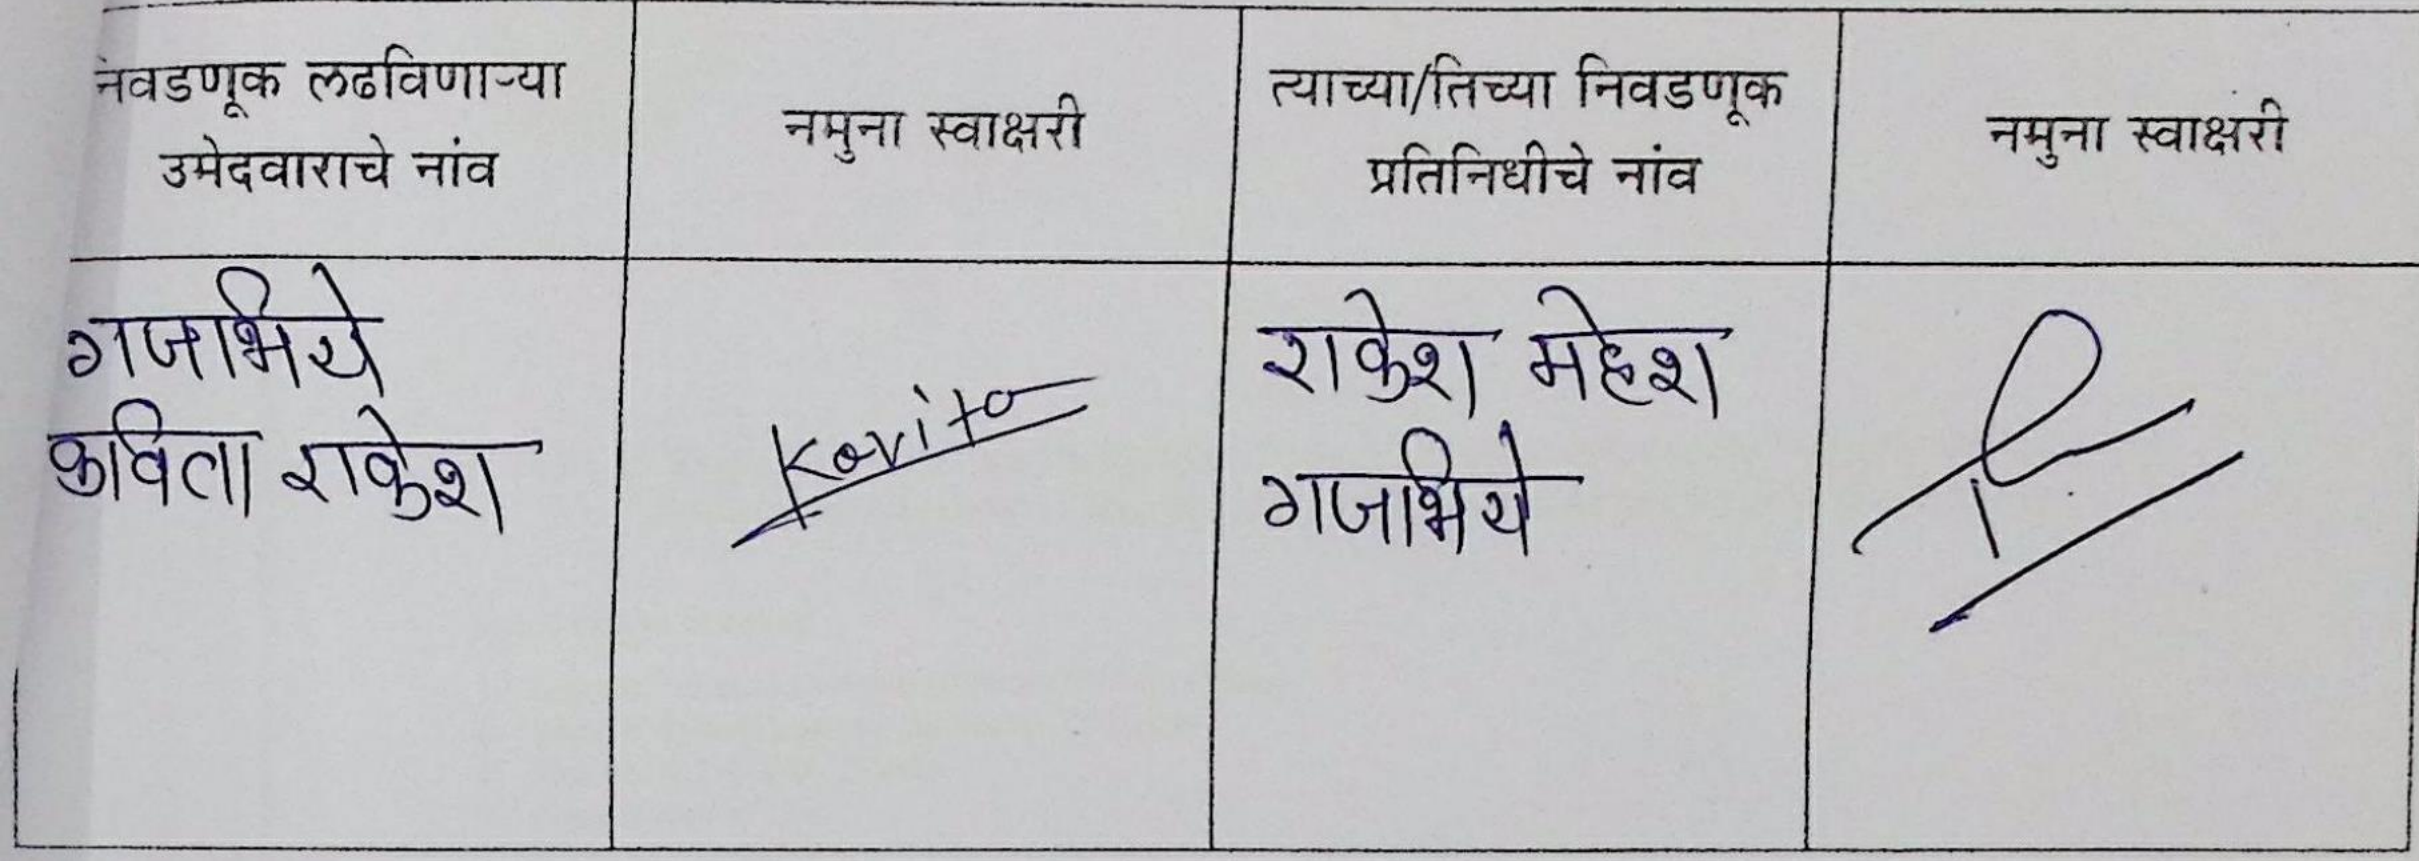 निवडणूक लढविणाऱ्या
उमेदवाराचे नांव
नमुना स्वाक्षरी
त्याच्या/तिच्या निवडणूक
प्रतिनिधीचे नांव
नमुना स्वाक्षरी
गजभिये
कविता राकेश
Kavita
राकेश महेश
गजभिये